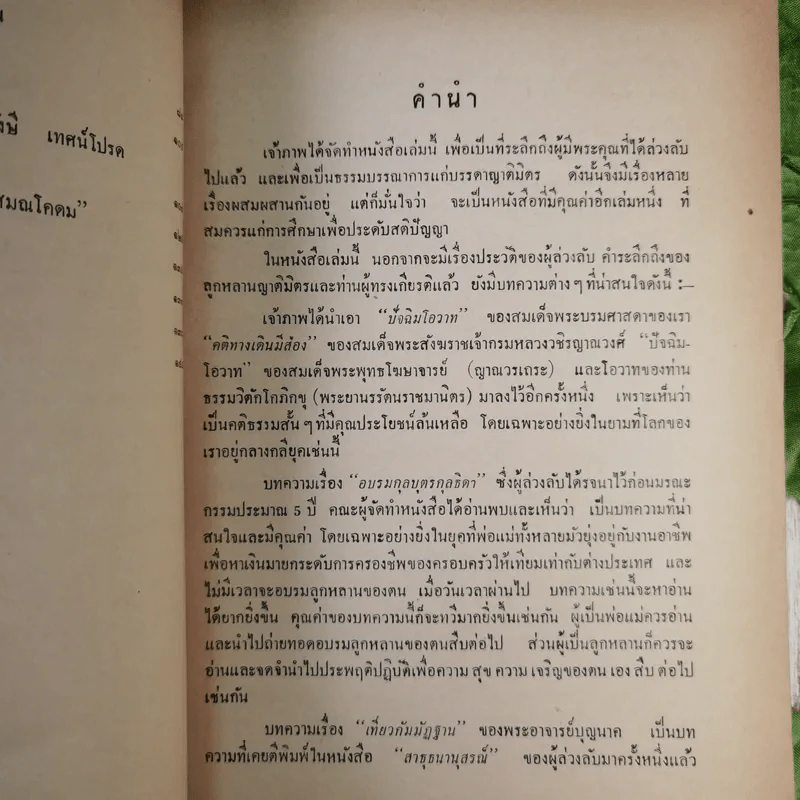 เทศน์โปรด
สมณโคดม”
คำนำ
เจ้าภาพได้จัดทำหนังสือเล่มนี้ เพื่อเป็นที่ระลึกถึงผู้มีพระคุณที่ได้ล่วงลับ
ไปแล้ว และเพื่อเป็นธรรมบรรณาการแก่บรรดาญาติมิตร ดังนั้นจึงมีเรื่องหลาย
เรื่องผสมผสานกันอยู่ แต่ก็มั่นใจว่า จะเป็นหนังสือที่มีคุณค่าอีกเล่มหนึ่ง ที่
สมควรแก่การศึกษาเพื่อประดับสติปัญญา
ในหนังสือเล่มนี้ นอกจากจะมีเรื่องประวัติของผู้ล่วงลับ คำระลึกถึงของ
ลูกหลานญาติมิตรและท่านผู้ทรงเกียรติแล้ว ยังมีบทความต่าง ๆ ที่น่าสนใจดังนี้ :—
เจ้าภาพได้นำเอา “ปัจฉิมโอวาท” ของสมเด็จพระบรมศาสดาของเรา
“คติทางเดินมีสอง” ของสมเด็จพระสังฆราชเจ้ากรมหลวงวชิรญาณวงศ์ “ปัจฉิม-
โอวาท” ของสมเด็จพระพุทธโฆษาจารย์ (ญาณวรเถระ) และโอวาทของท่าน
ธรรมวิตักโกภิกขุ (พระยานรรัตนราชมานิตร) มาลงไว้อีกครั้งหนึ่ง เพราะเห็นว่า
เป็นคติธรรมสั้น ๆ ที่มีคุณประโยชน์ล้นเหลือ โดยเฉพาะอย่างยิ่งในยามที่โลกของ
เราอยู่กลางกลียุคเช่นนี้
บทความเรื่อง “อบรมกุลบุตรกุลธิดา” ซึ่งผู้ล่วงลับได้รจนาไว้ก่อนมรณะ
กรรมประมาณ 5 ปี คณะผู้จัดทำหนังสือได้อ่านพบและเห็นว่า เป็นบทความที่น่า
สนใจและมีคุณค่า โดยเฉพาะอย่างยิ่งในยุคที่พ่อแม่ทั้งหลายมัวยุ่งอยู่กับงานอาชีพ
เพื่อหาเงินมายกระดับการครองชีพของครอบครัวให้เทียมเท่ากับต่างประเทศ และ
ไม่มีเวลาจะอบรมลูกหลานของตน เมื่อวันเวลาผ่านไป บทความเช่นนี้จะหาอ่าน
ได้ยากยิ่งขึ้น คุณค่าของบทความนี้ก็จะทวีมากยิ่งขึ้นเช่นกัน ผู้เป็นพ่อแม่ควรอ่าน
และนำไปถ่ายทอดอบรมลูกหลานของตนสืบต่อไป ส่วนผู้เป็นลูกหลานก็ควรจะ
อ่านและจดจำนำไปประพฤติปฏิบัติเพื่อความ สุข ความ เจริญของตน เอง สืบ ต่อไป
เช่นกัน
บทความเรื่อง “เที่ยวกัมมัฏฐาน” ของพระอาจารย์บุญนาค เป็นบท
ความที่เคยตีพิมพ์ในหนังสือ “สาธุธนานุสรณ์” ของผู้ล่วงลับมาครั้งหนึ่งแล้ว